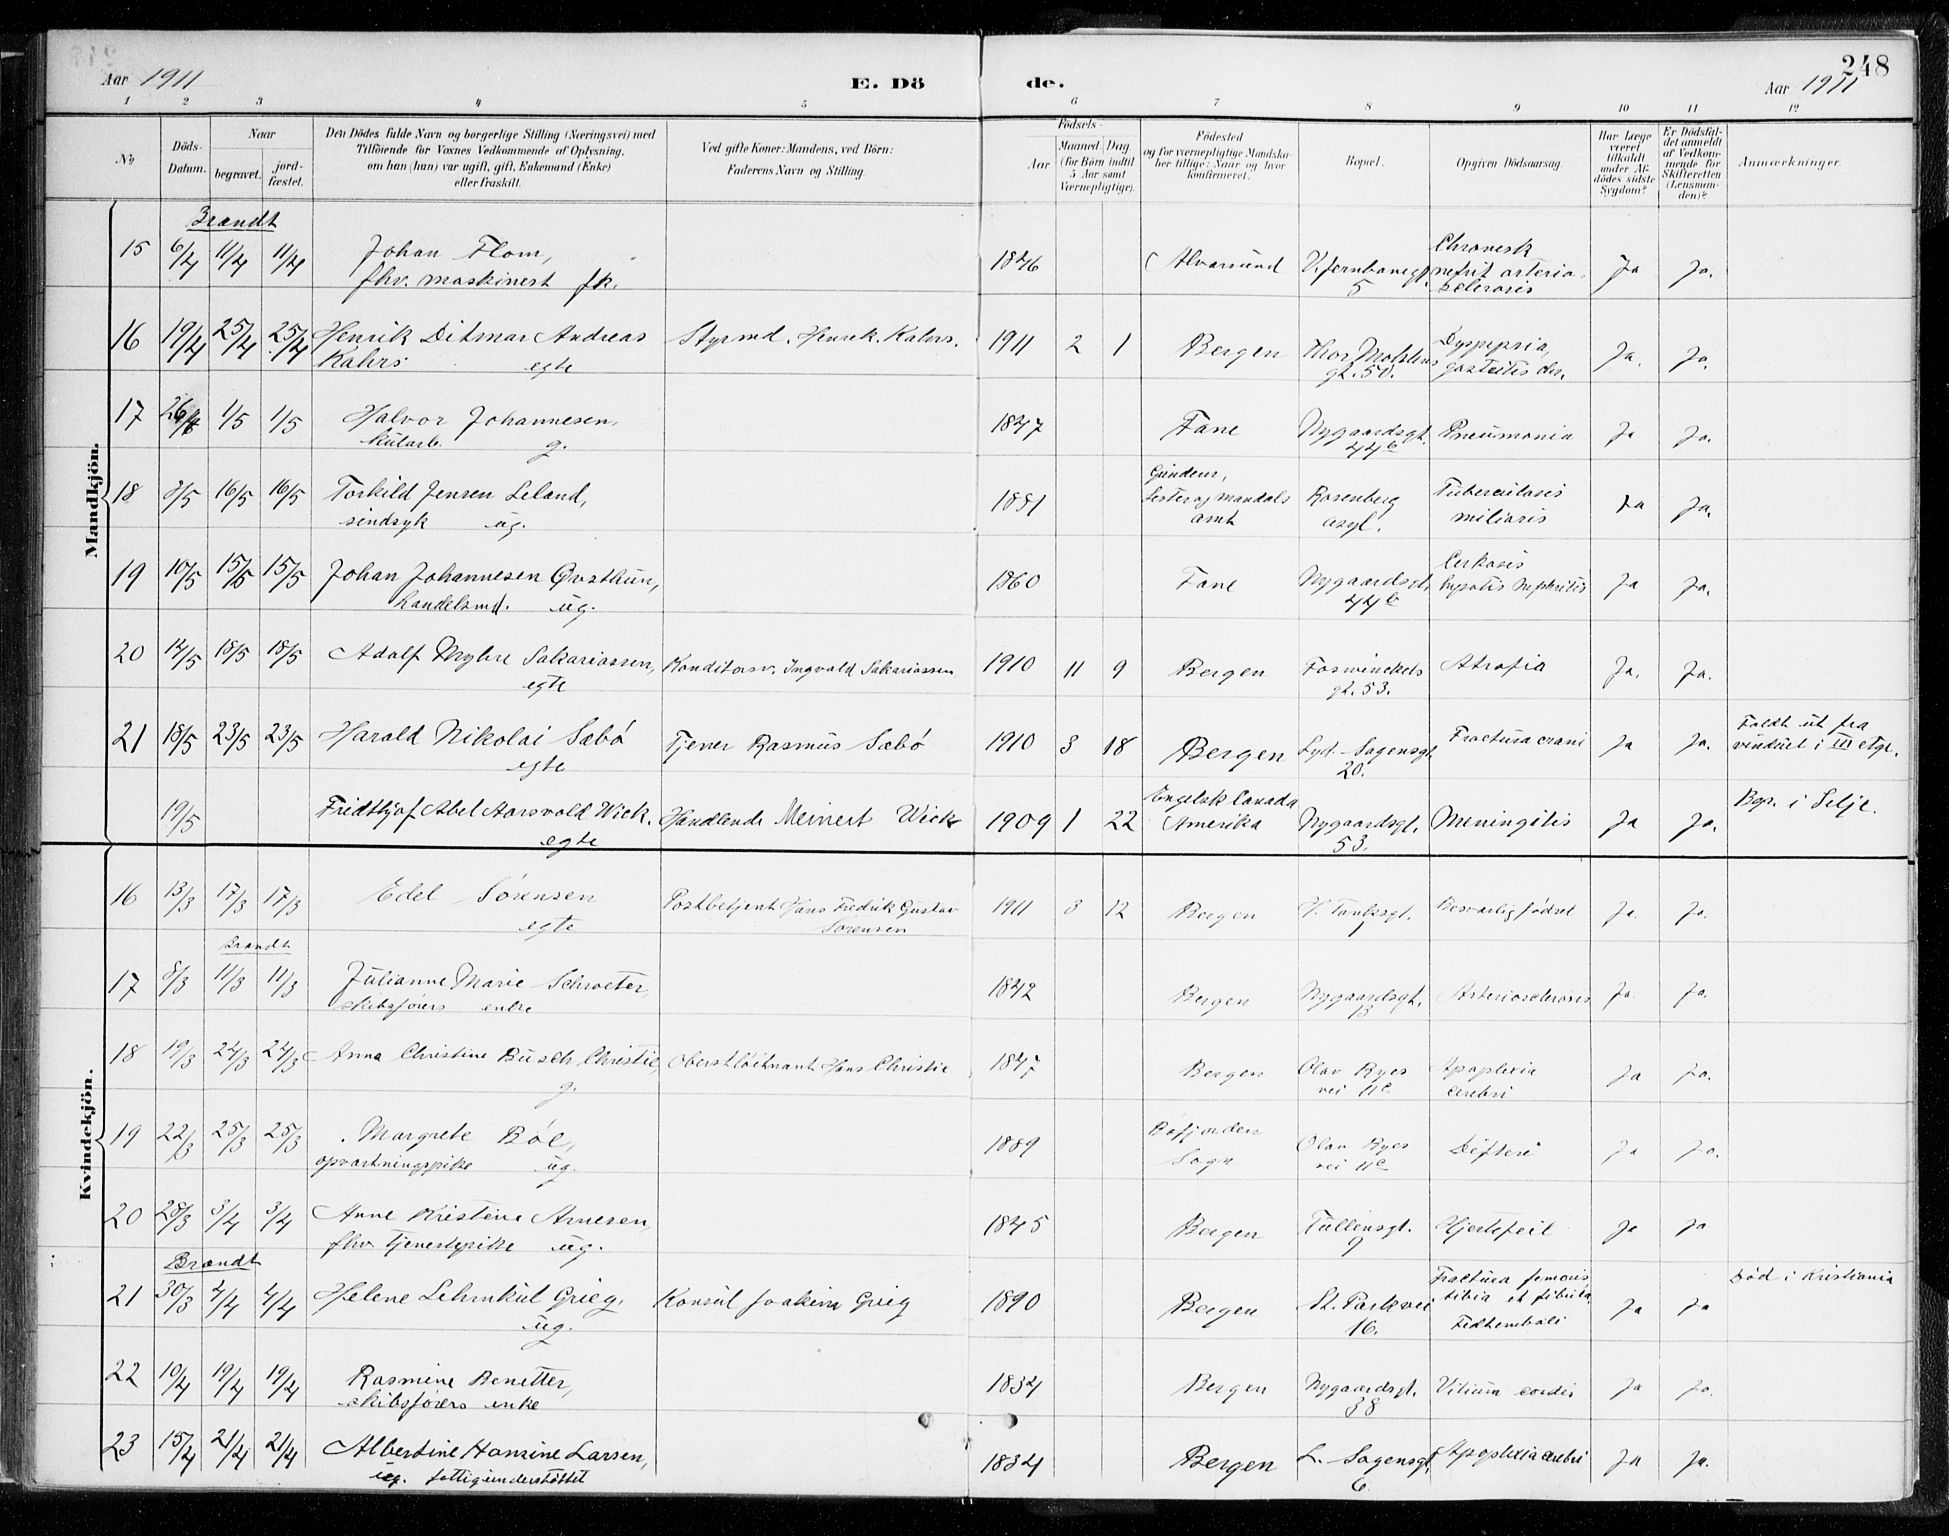 248
Aar 1911 E. Dö de. Aar 1911
1 2 3 4 5 6 7 8 9 10 11 12
№
Döds-
Datum.
Naar
begravet.
jord-
fæstet.
Den Dödes fulde Navn og borgerlige Stilling (Næringsvei) med
Tilföiende for Voxnes Vedkommende af Oplysning,
om han (hun) var ugift, gift, Enkemand (Enke)
eller fraskilt.
Ved gifte Koner: Mandens, ved Börn:
Faderens Navn og Stilling.
Födsels-
Aar
Maaned
Dag
(for Börn indtil
5 Aar samt
Værnepligtige).
Födested
og for værnepligtige Mandska-
ber tillige: Naar og hvor
konfirmeret.
Bopæl.
Opgiven Dödsaarsag.
Har Læge
været
tilkaldt
under Af-
dödes sidste
Sygdom?
Er Dödsfal-
det anmeldt
af Vedkom-
mende for
Skifteretten
(Lensman-
den)?
Anmærkninger.
Mandkjön.
Brændt
15 6/4 11/4 11/4 Johan Flom, 1846 Alversund V. jernbanegt. Chronisk
fhv. maskinist fr. 5 nefrit arterio-
sclerosis Ja Ja.
16 19/4 25/4 25/4 Henrik Ditmar Andreas Styrmd. Henrik Kahrs. 1911 2 1 Bergen Thor Møhlens Dyspepsia, Ja. Ja.
Kahrs egte gt. 50.
17 26/4 1/5 1/5 Halvor Johannesen, 1847 Fane Nygaardsgt. Pneumonia Ja Ja.
kularb. g. 44b
18 3/5 16/5 16/5 Torkild Jensen Leland, 1851 Lister og Mandals Rosenberg Tuberculosis Ja Ja.
sindsyk ug. amt asyl. miliaris
19 10/5 15/5 15/5 Johan Johannesen 1860 Fane Nygaardsgt. Cirhosis Ja Ja.
handelsmd. ug. 44b hepatis Nephritis
20 14/5 18/5 18/5 Adolf Myhre Sakariassen, Konditorsv. Ingvald Sakariassen 1910 11 9 Bergen Foswinckels Atrofia Ja. Ja.
egte gt. 53.
21 18/5 23/5 23/5 Harald Nikolai Sæbö Tjener Rasmus Sæbö 1910 3 18 Bergen Lyd. Sagensgt. Fractura crani Ja Ja. Faldt ut fra
egte 20. vinduet i III etge.
19/5 Fridthjof Abel Aarsvold Wick. Handlende Meinert Wick 1909 1 22 Engelsk Canada
Amerika Nygaardsgt. Meningitis Ja Ja. Bgr. i Selje.
egte 53.
Kvindekjön.
16 13/3 17/3 17/3 Edel Sörensen Postbetjent Hans Fredrik Gustav 1911 3 12 Bergen Besværlig födsel Ja. Ja.
egte Sörensen 1
Brændt
17 8/3 11/3 11/3 Julianne Marie Schrøeter, 1842 Bergen Nygaardsgt. Arteriosclerosis Ja. Ja.
skibsförers enke 13
18 19/3 24/3 24/3 Anna Christine Busch Christie, Oberstlöitnant Hans Christie 1847 Bergen Olav Ryes Apoplexia Ja Ja.
g. vei 11c cerebri
19 22/3 25/3 25/3 Margrete Böe, 1889 Sogn Olav Ryes Difteri Ja Ja.
opvartningspike ug. vei 11c
20 28/3 3/4 3/4 Anne Kristine Arnesen, 1845 Bergen Tullinsgt. Hjertefeil Ja Ja
fhv. tjenestepike ug. 9
Brændt
21 30/3 4/4 4/4 Helene Lehmkul Grieg, Konsul Joakim Grieg 1890 Bergen St. Parkvei Fractura femoris, Ja Ja Död i Kristiania
ug. 16. tibia et fibula,
Fedtemboli
22 10/4 19/4 19/4 Rasmine Benetter, 1834 Bergen Nygaardsgt. Vitium cordis Ja Ja.
skibsförers enke 38
23 15/4 21/4 21/4 Albertine Hansine Larsen, 1834 Bergen L. Sagensgt. Apoplexia cerebri Ja Ja.
ug. fattigunderstöttet 6